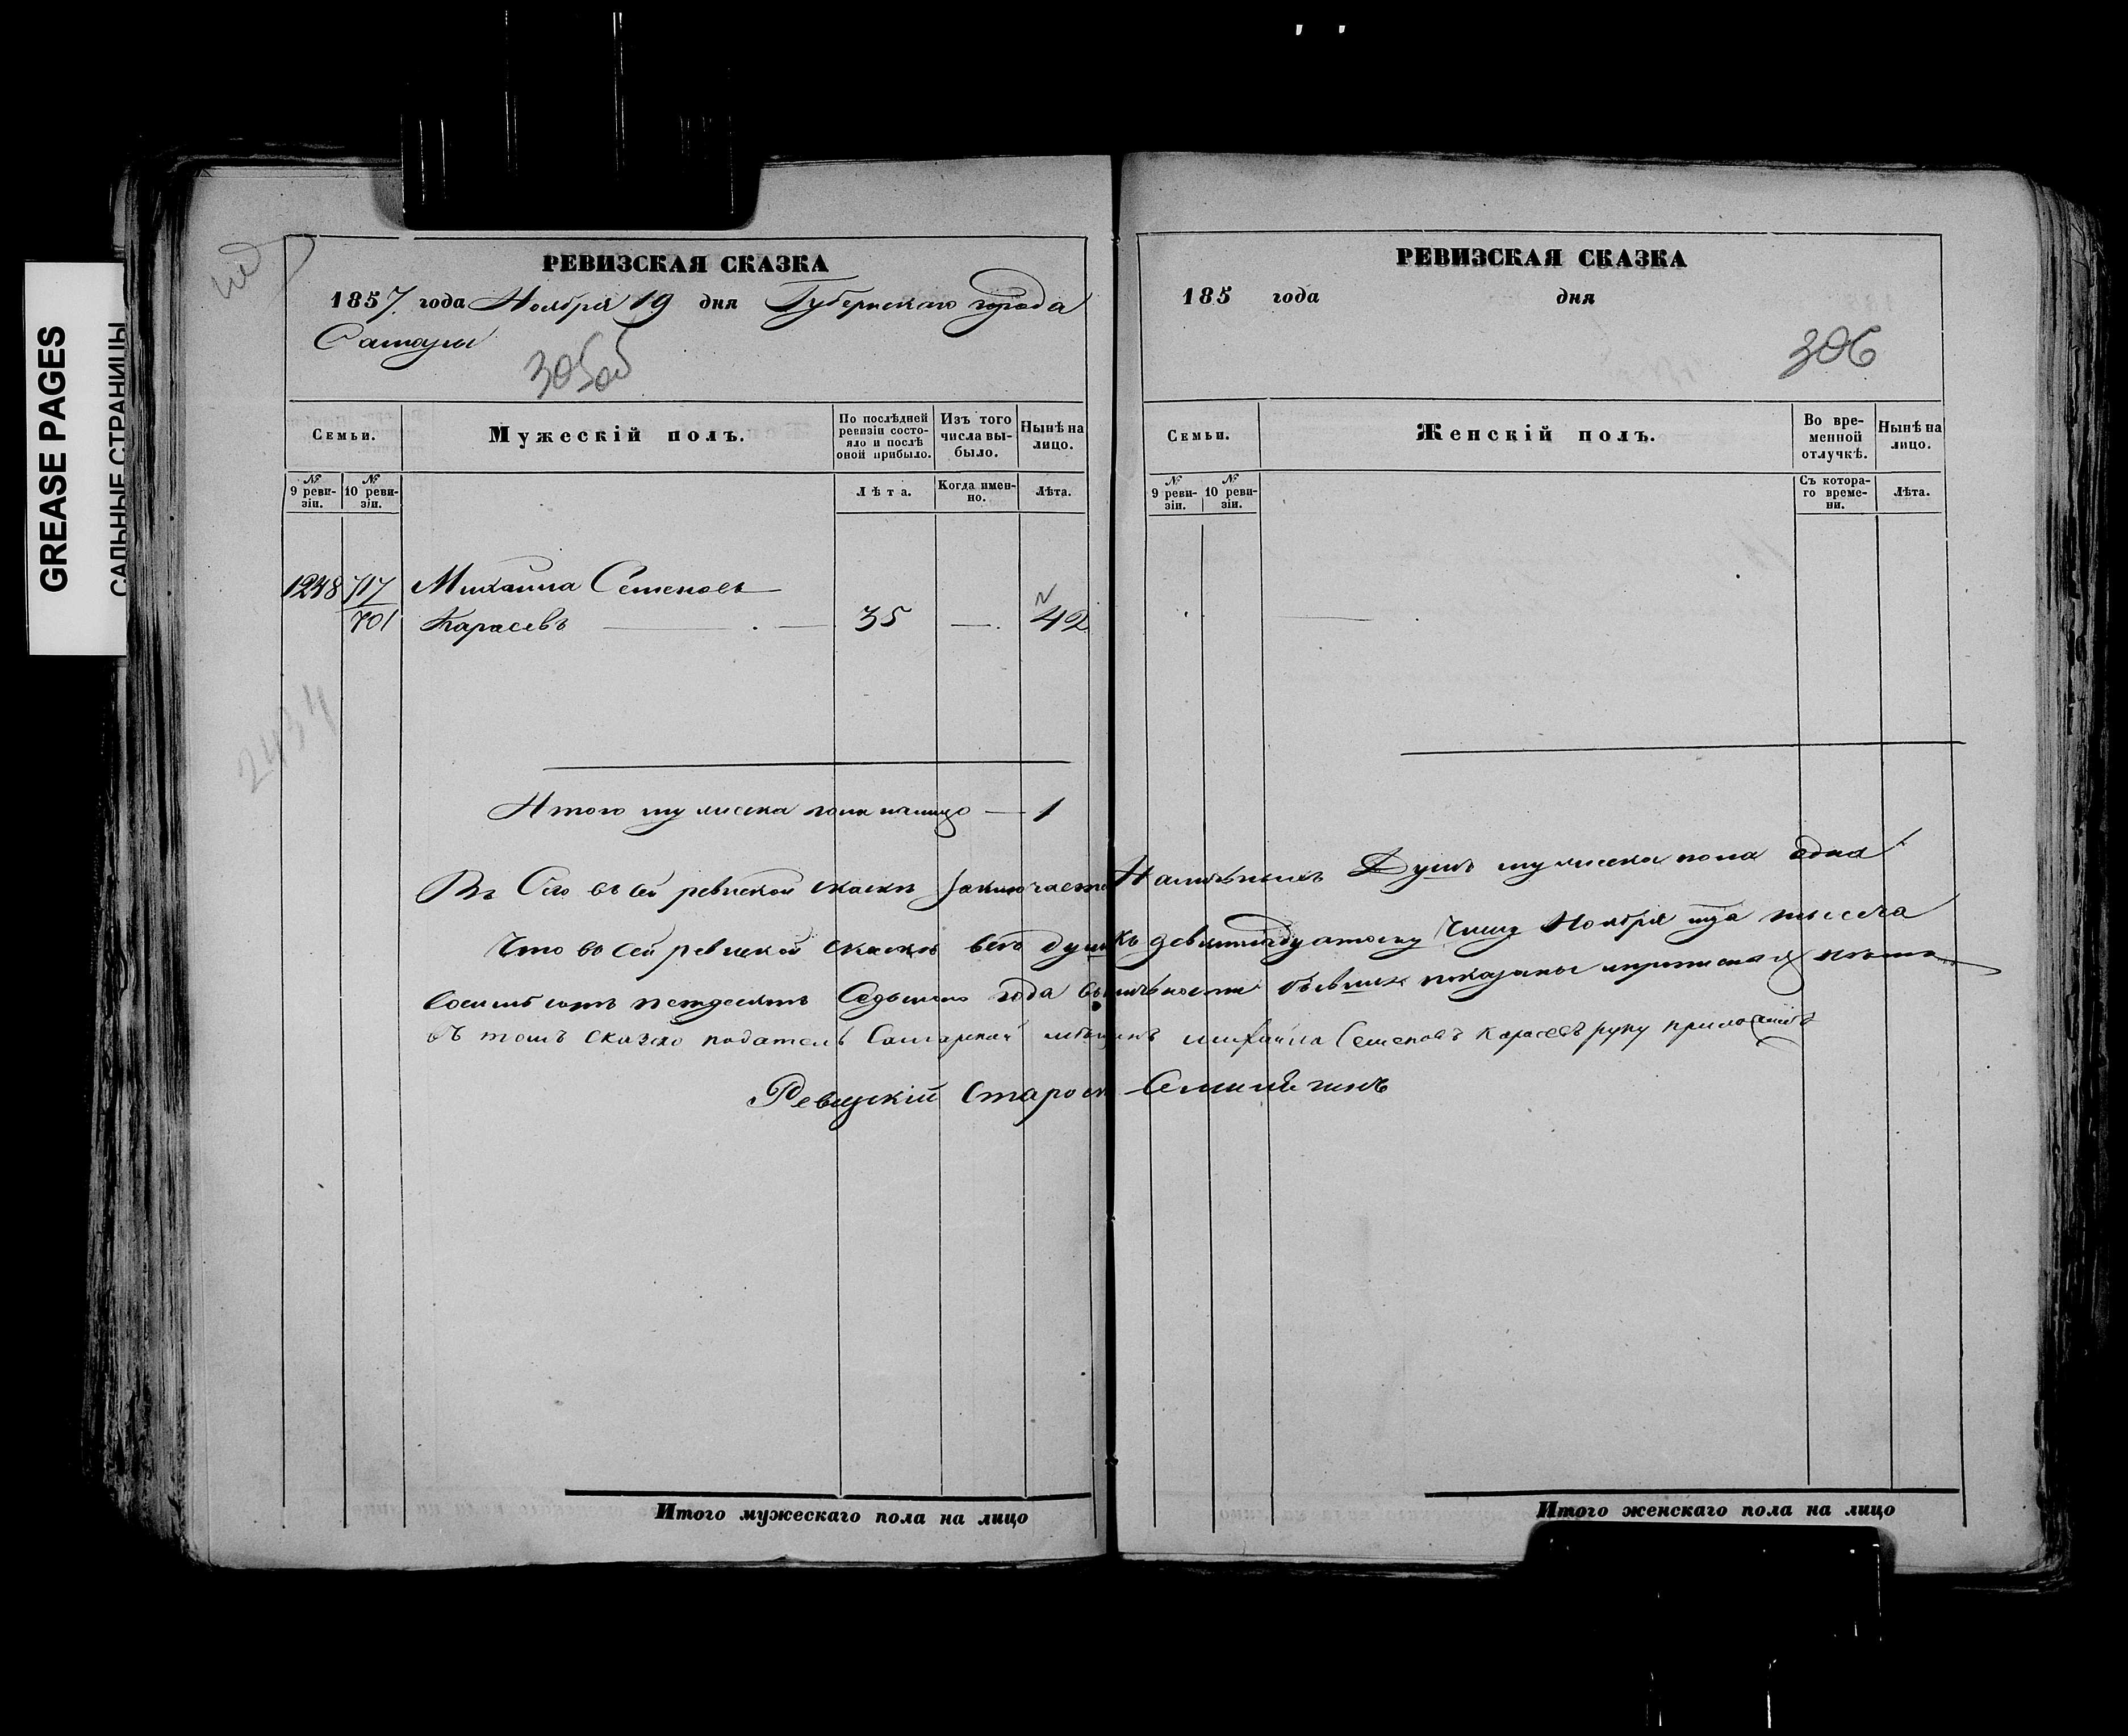 GREASE PAGES
САЛЬНЫЕ СТРАНИЦЫ
РЕВИЗСКАЯ СКАЗКА
1857 года Ноября 19 дня Губернскаго города
Самары
305об
Семьи.
Мужескій полъ.
По послѣдней ревизіи состояло и послѣ оной прибыло.
Изъ того числа выбыло.
Нынѣ на лицо.
№ 9 ревизіи.
№ 10 ревизіи.
Лѣта.
Когда именно.
Лѣта.
1248 717 Михайла Семеновъ
701 Карасевъ 35 — 42
2434
Итого мужеска пола налицо — 1
РЕВИЗСКАЯ СКАЗКА
185 года дня
306
Семьи.
Женскій полъ.
Во временной отлучкѣ.
Нынѣ на лицо.
№ 9 ревизіи.
№ 10 ревизіи.
Съ котораго времени.
Лѣта.
въ сей ревиской скаскѣ заключается Наличныхъ Душъ мужеска пола одна
Что во сей ревиской скаскѣ всѣ души къ девятнадцатому числу Ноября тысеча
восемьсотъ петдесятъ Седьмаго года въ наличности бывших показаны
въ томъ сказко податель Самарской мѣщенъ михаила Семеновъ Карасевъ руку приложилъ
Ревизскій Староста
Итого мужескаго пола на лицо
Итого женскаго пола на лицо